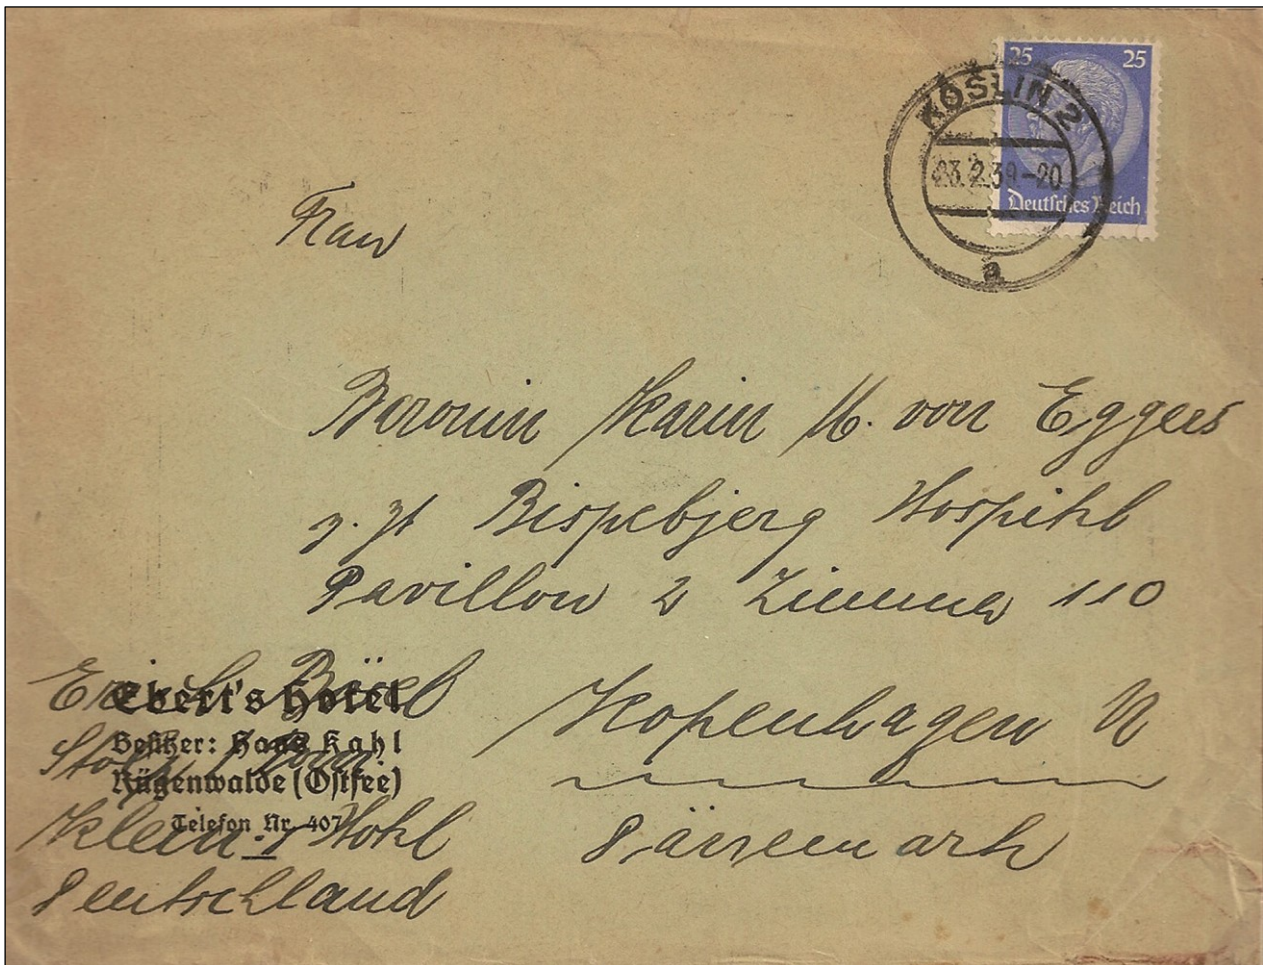 25 25
KÖSLIN 2
23.2.39-20
Deutsches Reich
a
Frau
Baronin Karin M. von Eggers
z. Zt Bispebjerg Hospital
Pavillon 2 Zimmer 110
Kopenhagen N
Dänemark
Ebert's Hotel
Besitzer: Hans Kahl
Rügenwalde (Ostsee)
Telefon Nr. 407
Stolp Pom.
Klein
Deutschland